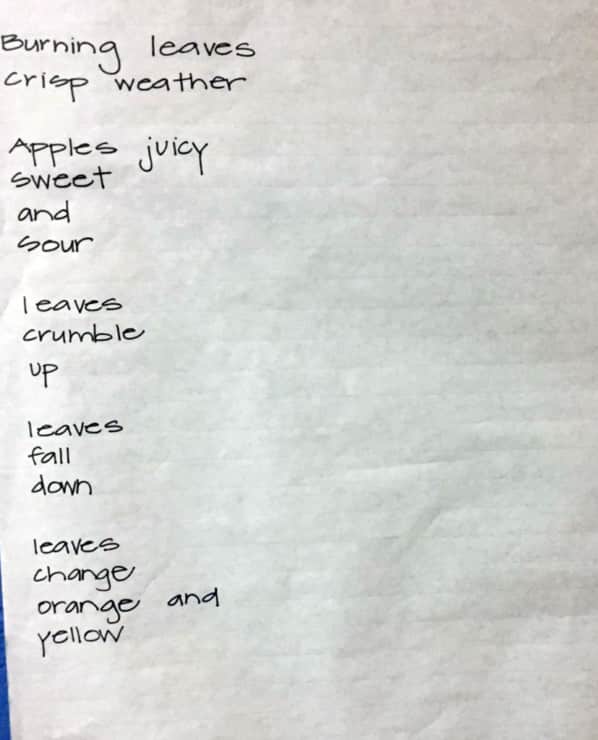 Burning leaves
crisp weather
Apples juicy
sweet
and
sour
leaves
crumble
up
leaves
fall
down
leaves
change
orange and
yellow